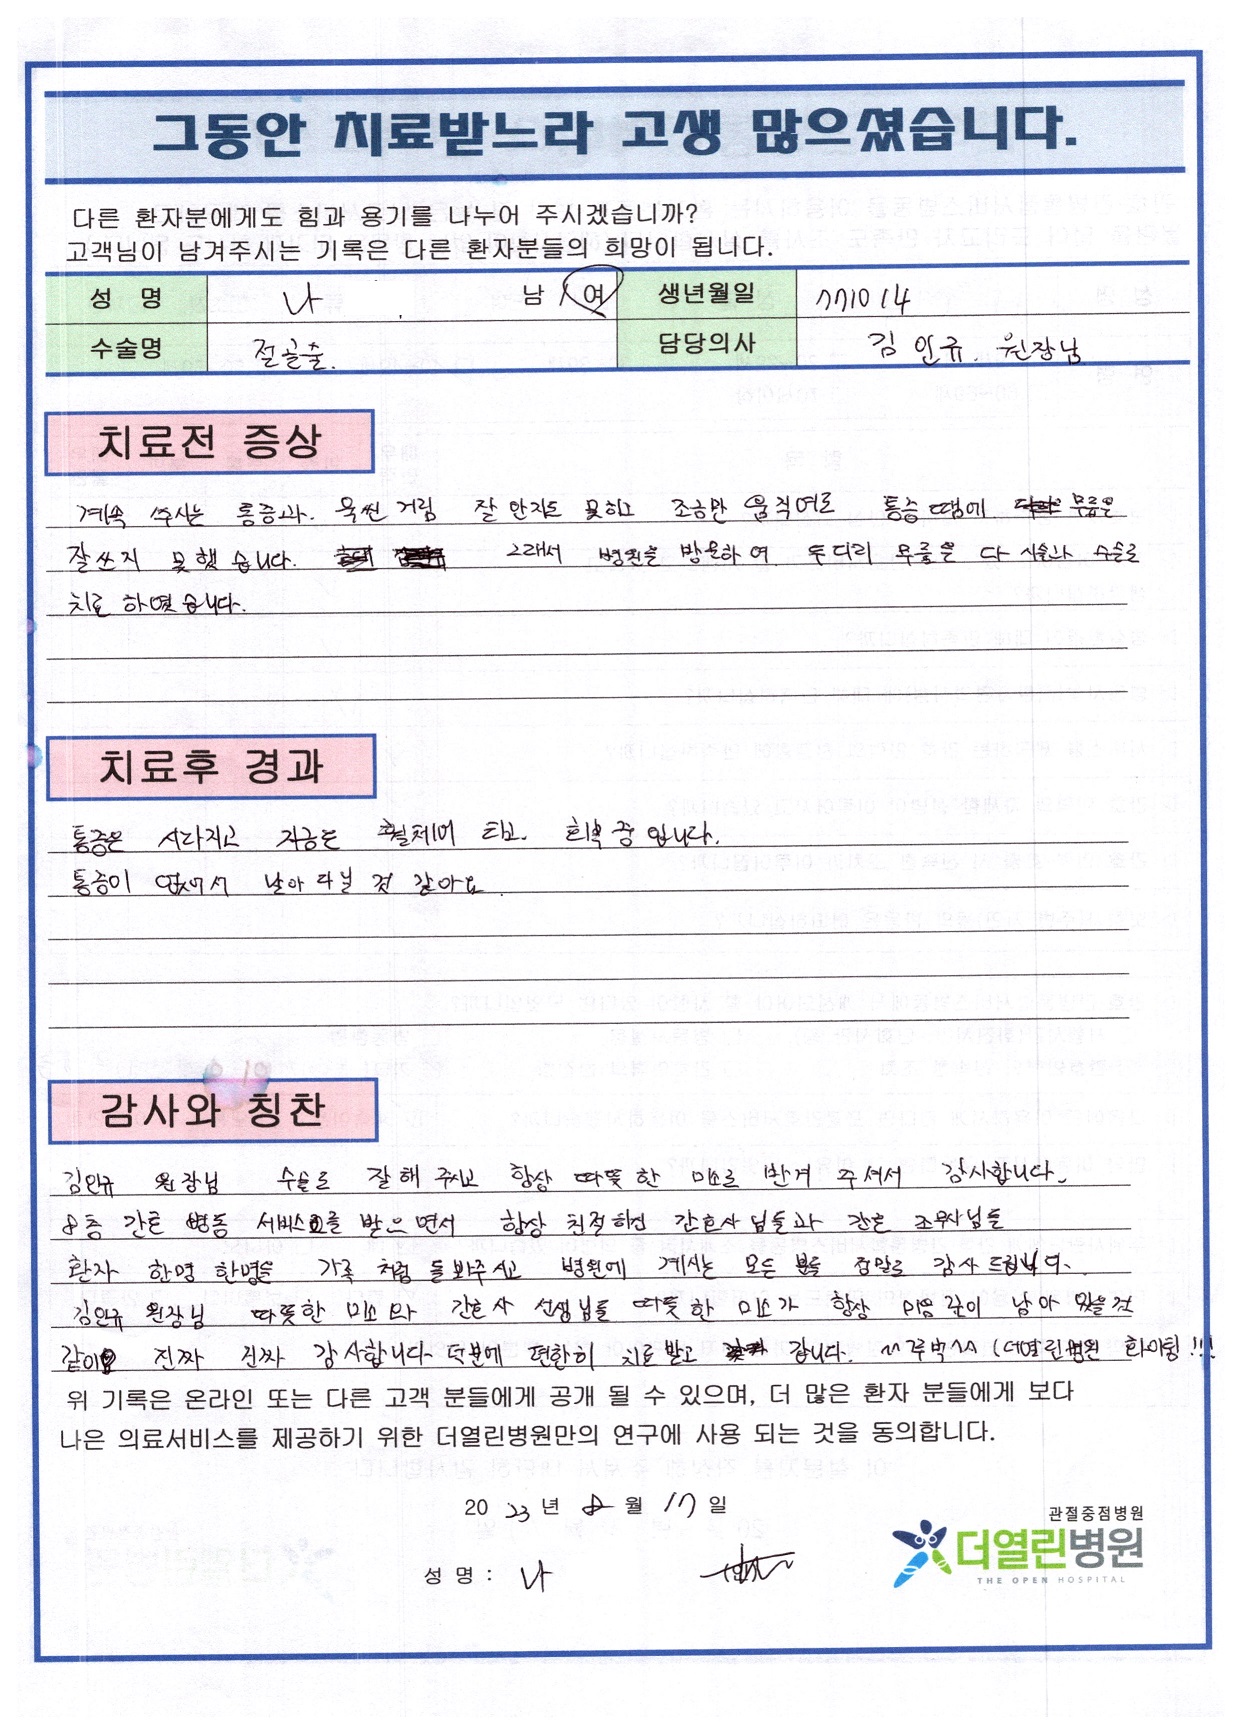 그동안 치료받느라 고생 많으셨습니다.
다른 환자분에게도 힘과 용기를 나누어 주시겠습니까?
고객님이 남겨주시는 기록은 다른 환자분들의 희망이 됩니다.
성 명 나 남 / 여 생년월일 771014
수술명 절골술. 담당의사 김인규. 원장님
치료전 증상
계속 쑤시는 통증과. 욱씬 거림 잘 안지도 못하고 조금만 움직여로 통증 땜에 무릎은
잘쓰지 못했습니다. 그래서 병원을 방문하여 두다리 무릎을 다 시술과 수술로
치료 하였습니다.
치료후 경과
통증은 사라지고 지금은 휠체어 타고. 회복 중 입니다.
통증이 없어서 날아 다닐 것 같아요.
감사와 칭찬
김인규 원장님 수술로 잘해 주시고 항상 따뜻한 미소로 반겨 주셔서 감사합니다.
8층 간호 병동 서비스를 받으면서 항상 친절하신 간호사님들과 간호 조무사님들
환자 한명 한명을 가족 처럼 돌봐주시고 병원에 계시는 모든 분들 정말로 감사드립니다.
김인규 원장님 따뜻한 미소와 간호사 선생님들 따뜻한 미소가 항상 마음 깊이 남아 있을것
같아요 진짜 진짜 감사합니다 덕분에 편안히 치료 받고 갑니다. ^^ (더열린병원 화이팅!!!
위 기록은 온라인 또는 다른 고객 분들에게 공개 될 수 있으며, 더 많은 환자 분들에게 보다
나은 의료서비스를 제공하기 위한 더열린병원만의 연구에 사용 되는 것을 동의합니다.
20 23 년 8 월 17 일
성 명 : 나
관절중점병원
더열린병원
THE OPEN HOSPITAL